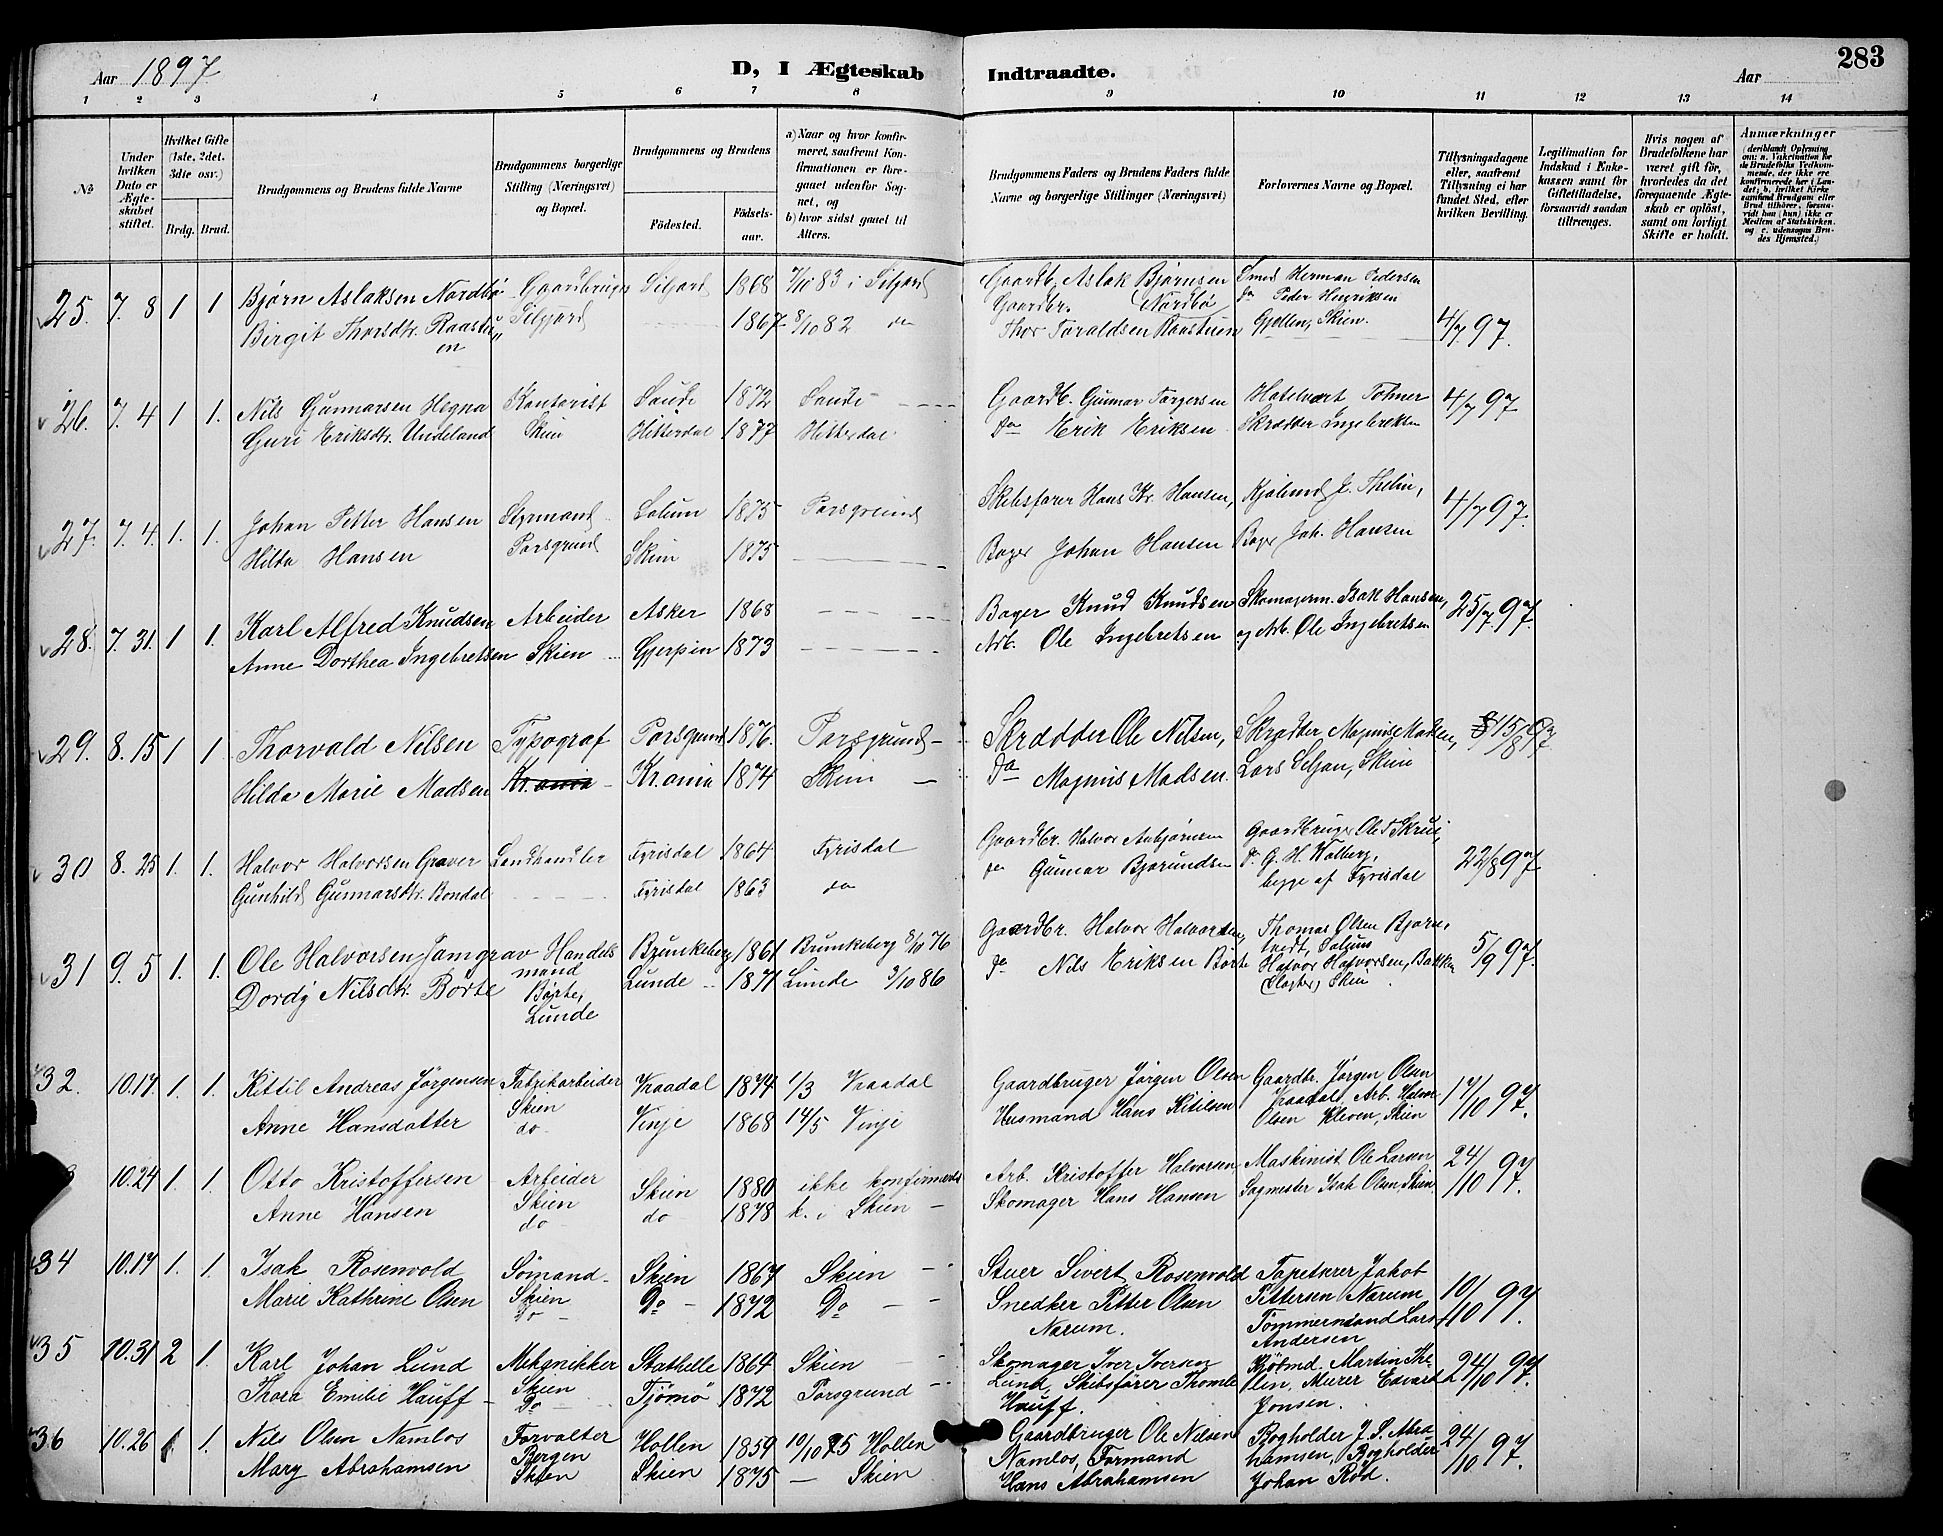 Aar 1897
D, I Ægteskab Indtraadte.
Aar
283
1 2 3 4 5 6 7 8 9 10 11 12 13 14
№
Under hvilken Dato er Ægteskabet stiftet.
Hvilket Gifte (1ste, 2det. 3die osv.)
Brdg. Brud.
Brudgommens og Brudens fulde Navne
Brudgommens borgerlige Stilling (Næringsvei) og Bopæl.
Brudgommens og Brudens
Fødested.
Fødselsaar.
a) Naar og hvor konfirmeret, saafremt Konfirmationen er foregaaet udenfor Sognet, og
b) hvor sidst gaaet til Alters.
Brudgommens Faders og Brudens Faders fulde Navne og borgerlige Stillinger (Næringsvei)
Forlovernes Navne og Bopæl.
Tillysningsdagene eller, saafremt Tillysning ei har fundet Sted, efter hvilken Bevilling.
Legitimation for Indskud i Enkekassen samt for Giftetilladelse, forsaavidt saadan tiltrænges.
Hvis nogen af Brudefolkene har været gift før, hvorledes da det foregaaende Ægteskab er opløst, samt om lovligt Skifte er holdt.
Anmærkninger (deriblandt Oplysning om: a. Vakcination for de Brudefolks Vedkommende, der ikke ere konfirmerede her i Landet; b. hvilket Kirkesamfund Brudgom eller Brud tilhører, forsaavidt han (hun) ikke er Medlem af Statskirken, og c. udensogns Brudes Hjemsted.)
25. 7. 8 1 1 Bjørn Aslaksen Nordbø Gaardbruger Siljord 1868 7/10 83 i Siljord Gaardb. Aslak Bjørnsen Smed Herman Pedersen
Silgjord Gaardbr. Nordbø do Peder Henriksen
Birgit Thorsdtr. Raastuen 1867 8/10 82 do Thor Toraldsen Raastuen Gjellen, Skien. 4/7 97.
26. 7. 4 1 1. Nils Gunnarsen Hegna Kontorist Saude 1872 Saude Gaardb. Gunnar Torgersen Hotelvært Tohner 4/7 97
Guri Eriksdtr. Undeland Skien Hitterdal 1877 Hitterdal do Erik Eriksen Skrædder Ingebretsen
27. 7. 4. 1. 1. Johan Petter Hansen Styrmand Solum 1875 Porsgrund Skibsfører Hans Kr. Hansen, Kjøbmd J. Thelin, 4/7 97.
Hilda Hansen Porsgrund Skien 1875 Bager Johan Hansen Bager Joh. Hansen
28. 7. 31. 1 1. Karl Alfred Knudsen Arbeider Asker 1868 Bager Knud Knudsen Skomagerm. Isak Hansen, 25/7 97.
Anne Dorthea Ingebretsen Skien Gjerpen 1873 Arb. Ole Ingebretsen og Arb. Ole Ingebretsen
29. 8. 15 1 1. Thorvald Nilsen Typograf Porsgrund 1876. Porsgrund Skrædder Ole Nilsen, Skrædder Magnus Madsen, 15/8 97
Hilda Marie Madsen Kr.ania Kr.ania 1874 Skien do Magnus Madsen. Lars Seljan, Skien
30 8. 25 1. 1. Halvor Halvorsen Graver Landhandler Fyrisdal 1864 Fyrisdal Gaardbr. Halvor Anbjørnsen Gaardbruger Ole T Skrui, 22/8 97
Gunhild Gunnarsdtr. Bondal Fyrisdal 1863 do do Gunnar Bjorundsen do G. H. Kolberg,
begge af Fyrisdal
31 9. 5 1. 1. Ole Halvorsen Jamgrav Handels Brunkeberg 1861 Brunkeberg 8/10 76 Gaardbr. Halvor Halvorsen, Thomas Olsen Bjørn, 5/9 97.
mand tvedt, Solum
Dordy Nilsdtr. Børte Børte, Lunde 1871 Lunde 3/10 86 do Nils Eriksen Børte Halvor Halvorsen, Bakken
Lunde Closter, Skien
32. 10.17. 1. 1. Kittil Andreas Jørgensen Fabrikarbeider Vraadal 1874 1/3 Vraadal Gaardbruger Jørgen Olsen Gaardbr. Jørgen Olsen 17/10 97.
Skien Vraadal, Arb. Halvor
Anne Hansdatter do Vinje 1868 14/5 Vinje Husmand Hans Kitilsen Olsen Kleven, Skien
10.24 1. 1. Otto Kristoffersen Arbeider Skien 1880 ikke konfirmeret Arb. Kristoffer Halvorsen Maskinist Ole Larsen 24/10 97.
Skien
Anne Hansen do do 1878 k. i Skien Skomager Hans Hansen Sagmester Isak Olsen, Skien
34 10.17 1. 1. Isak Rosenvold Sømand Skien 1867 Skien Stuer Sivert Rosenvold Tapetserer Jakob 10/10 97.
Marie Kathrine Olsen Skien Do 1872 Do Snedker Petter Olsen Pettersen Narum
Do Narum. Tømmermand Lars
Andersen
35 10.31 2 1. Karl Johan Lund Mekanikker Stathelle 1864 Skien Skomager Iver Iversen Kjøbmd. Martin The- 24/10 97.
Skien Lund, Skibsfører Thomle lin, Murer Edvard
Thora Emilie Hauff Do Tjømø 1872 Porsgrund Hauff. Jonsen.
36 10.26 1. 1. Nils Olsen Namlos Forvalter Hollen 1859 10/10 75 Hollen Gaardbruger Ole Nilsen Bogholder J. S. Abra- 24/10 97.
Bergen Namlos, Formand hamsen, Bogholder
Mary Abrahamsen Skien Skien 1875 — Skien Hans Abrahamsen Johan Rød.